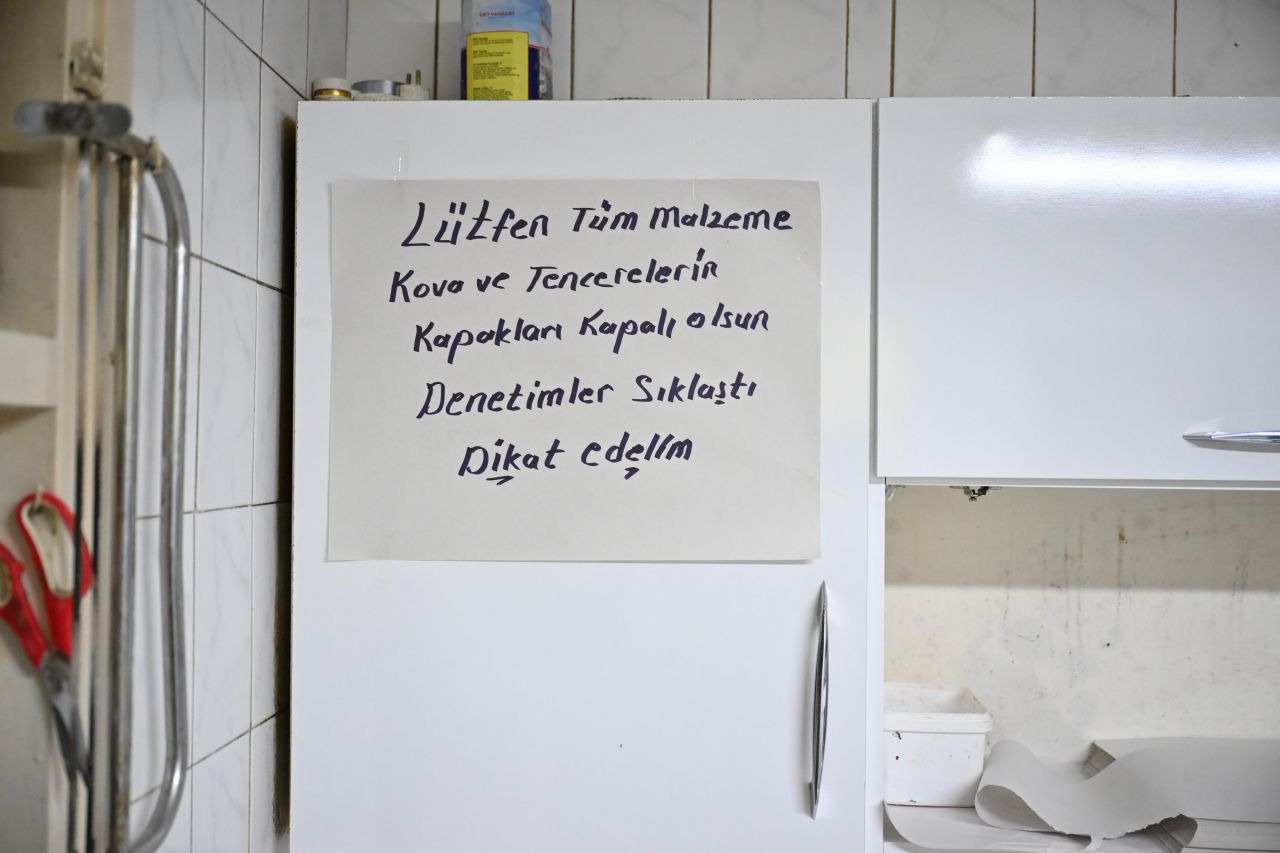 Lütfen Tüm Malzeme
Kova ve Tencerelerin
Kapakları Kapalı olsun
Denetimler Sıklaştı
Dikat edelim